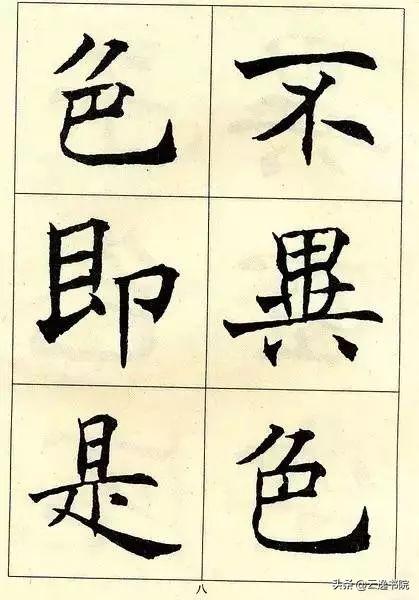 不異色
色即是
八
头条@云逸书院